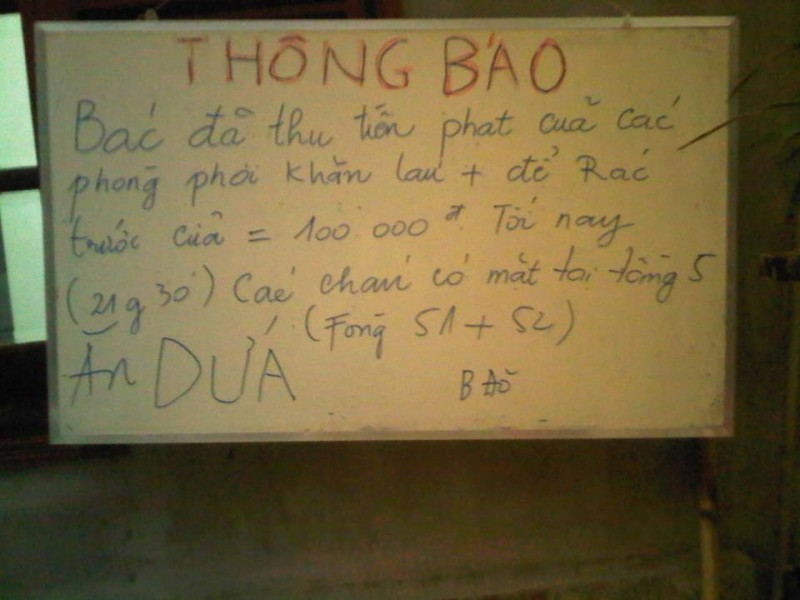 THÔNG BÁO
Bác đã thu tiền phạt của các
phòng phơi khăn lau + để Rác
trước cửa = 100.000đ Tối nay
(21g30') Các cháu có mặt tại tầng 5
(Fòng 51 + 52)
Ăn DƯÁ
BẢO